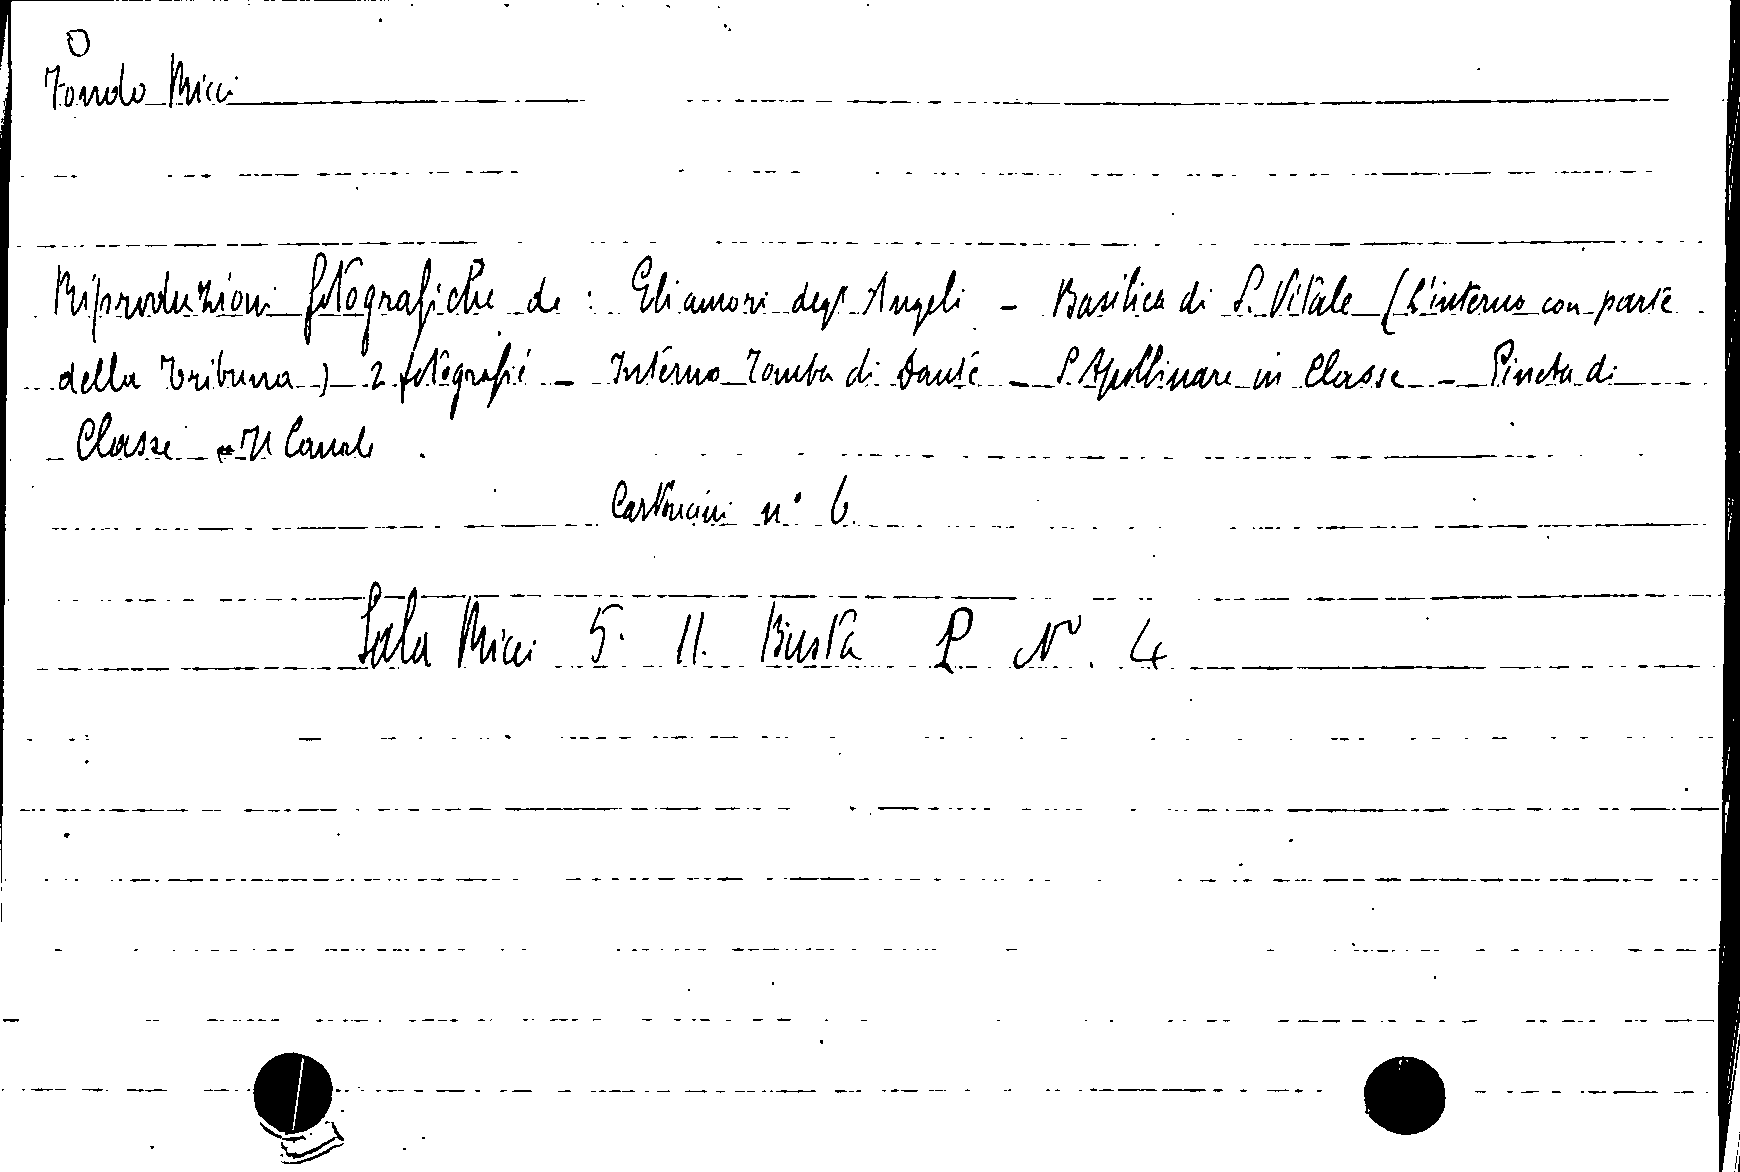 O
Fondo Ricci
Riproduzioni fotografiche de : Gli amori degl' Angeli - Basilica di S. Vitale (L'interno con parte
della Tribuna) 2 fotografie - Interno Tomba di Dante - S. Apollinare in Classe - Pineta di
Classe - Il Canale .
Cartoncini n° 6
Sala Ricci 5. 11. Busta P N°. 4